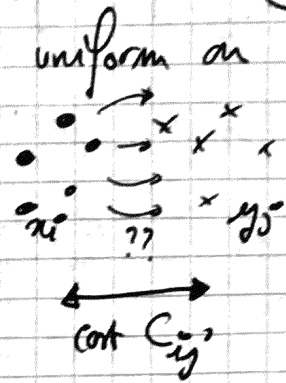 uniform on
xi yj
??
cost Cij